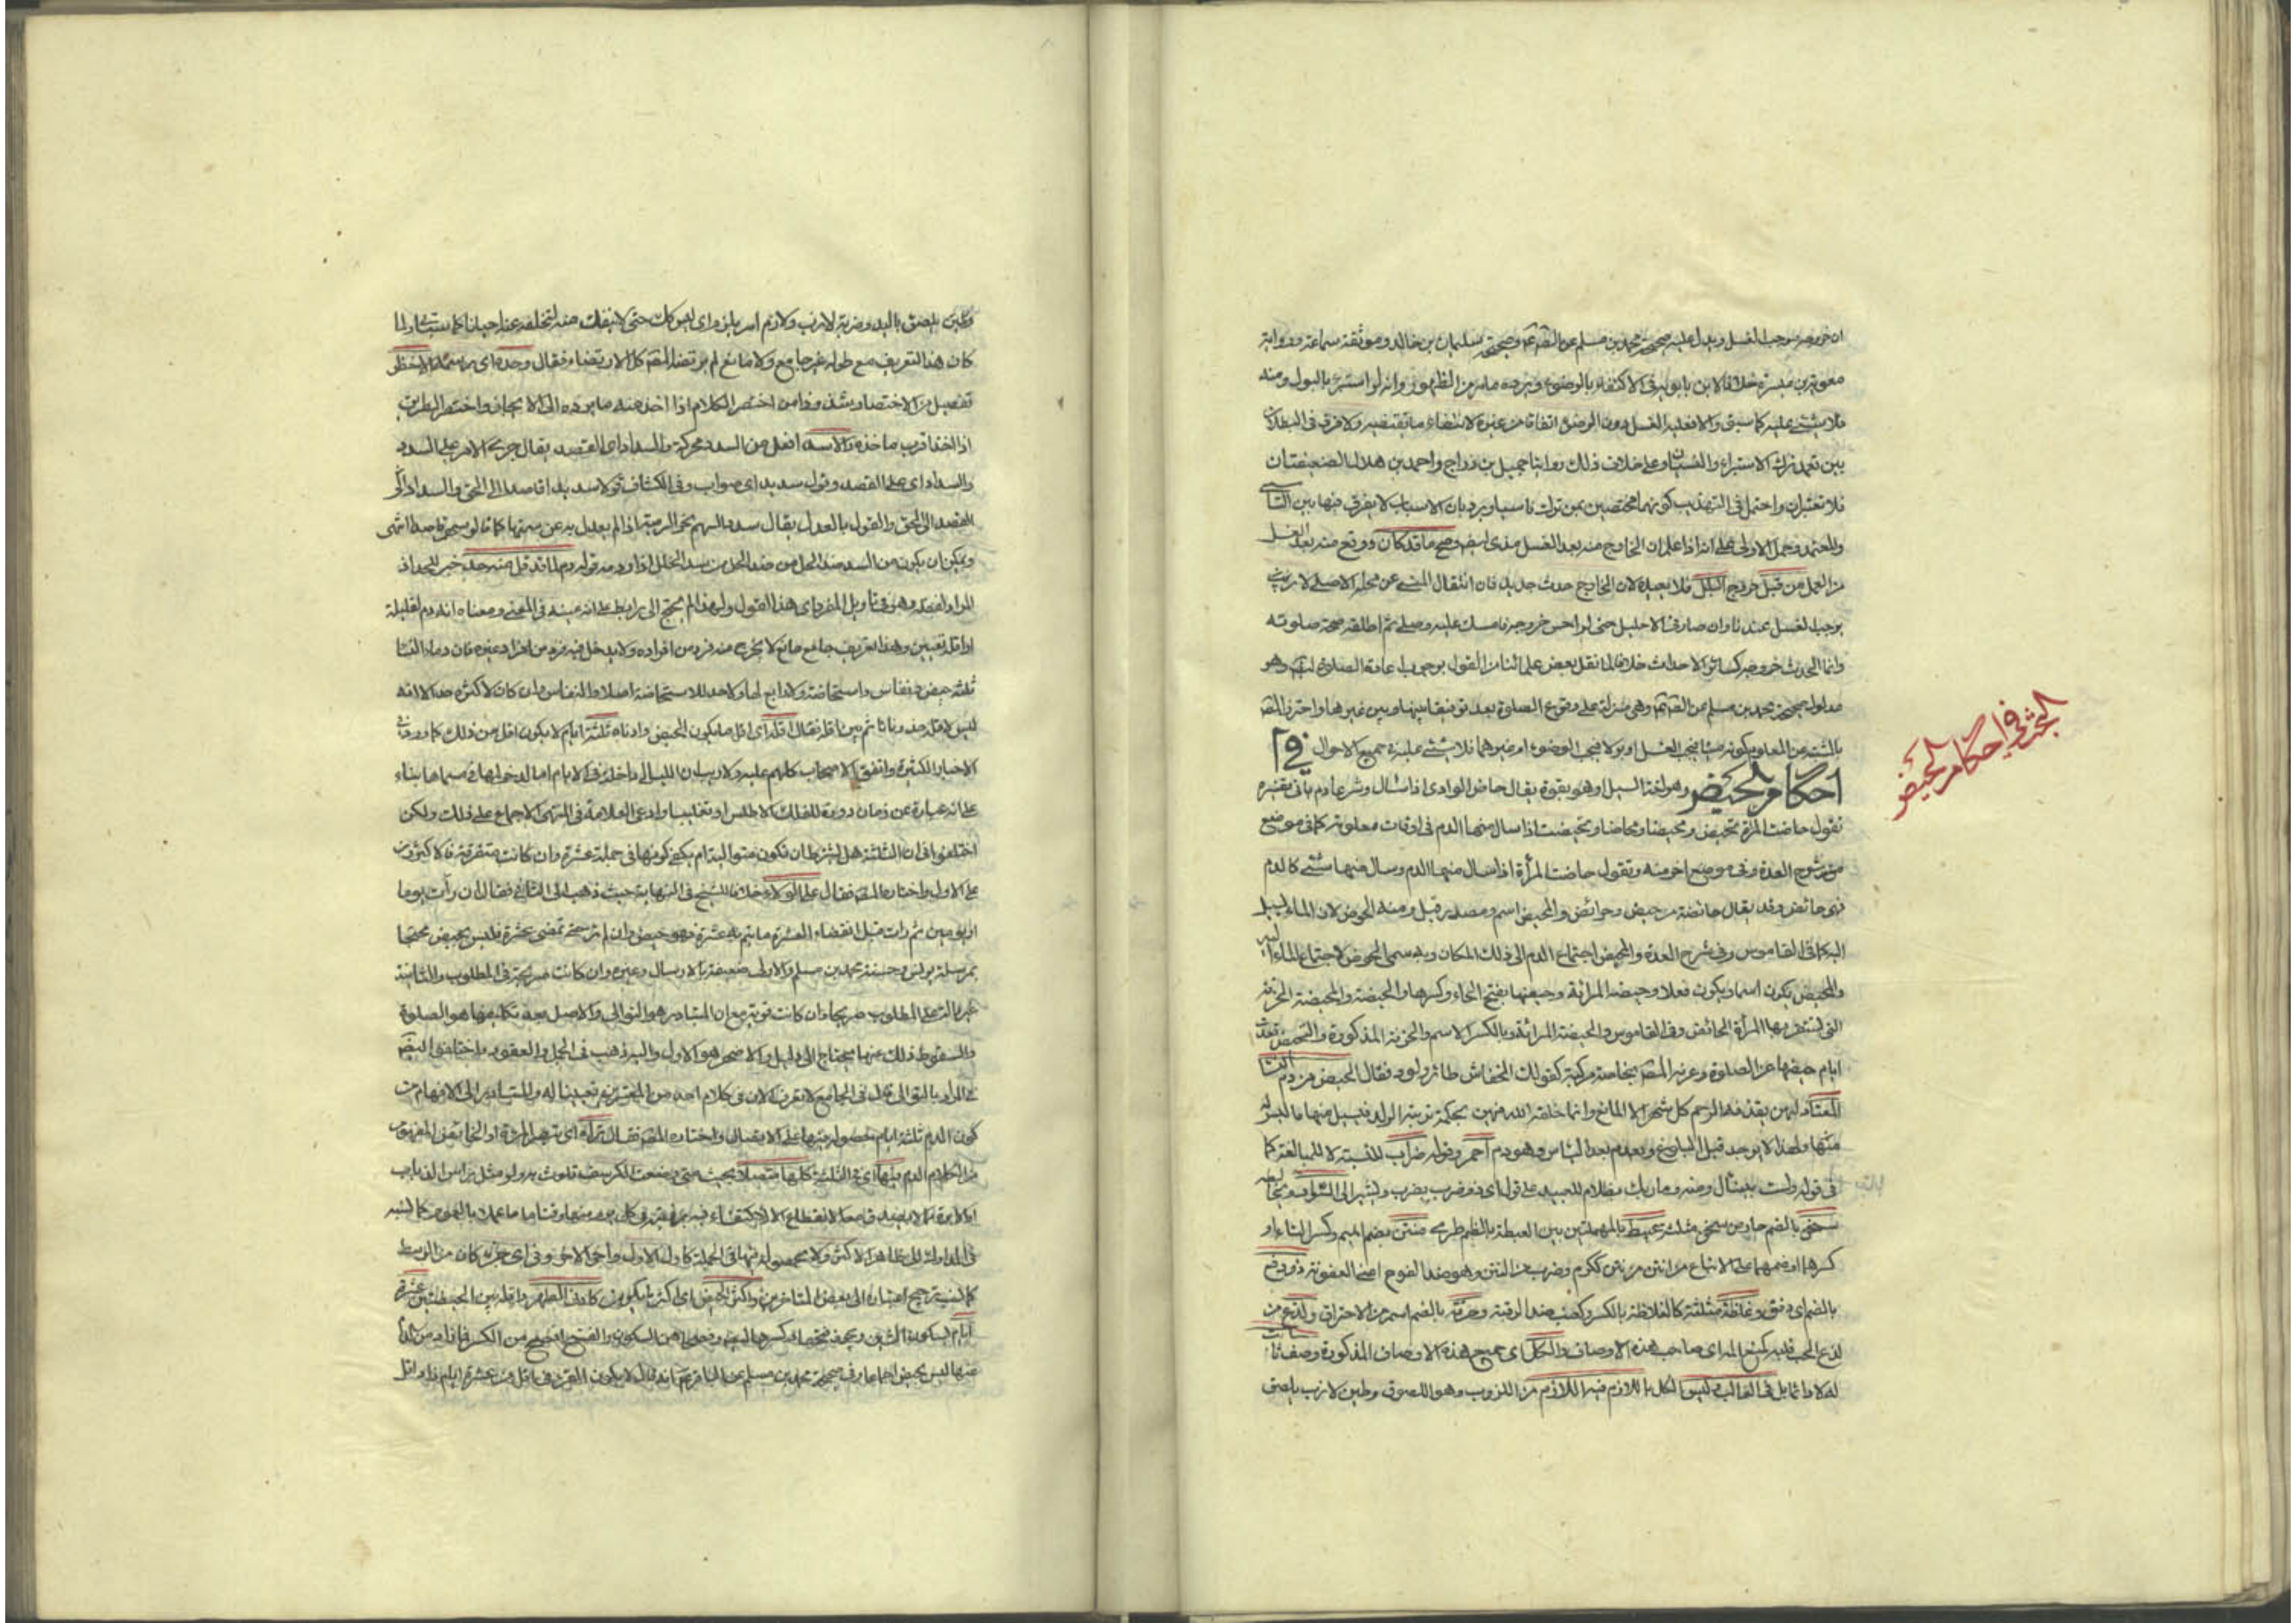 ان خروجه موجب الغسل ويدل عليه صحيحة محمد بن مسلم عن الصادق وصحيحة سليمان بن خالد وموثقة سماعة ورواية
معوية بن ميسرة خلافا لابن بابويه في الاكتفاء بالوضوء ويرده ما مر من الظهور وانه لو استبرء بالبول ومنه
فلا شئ عليه كما سبق والا فعليه الغسل دون الوضوء اتفاقا من غيره لانتفاء ما يقتضيه ولا فرق في البطلان
بين تعمد ترك الاستبراء والنسيان وعلى خلاف ذلك روايتا جميل بن دراج واحمد بن هلال الضعيفتان
فلا تعتبران واحتمل في التهذيب كونهما مختصين بمن ترك ناسيا ويرد بان الاسباب لا يفرق فيها بين الناسي
والمتعمد وحمل الاولى على انه اذا علم ان الخارج منه بعد الغسل مذى وصح ما قد كان ووقع منه بعد الغسل
من العمل من قبل خروج البلل فلا يعيده لان الخارج حدث جديد فان انتقال المنى عن محله الاصلي لا
يوجب الغسل عندنا وان صار في الاحليل حتى لو احس خروجه فامسك عليه وصلى ثم اطلقه صحت صلوته
وانما الحدث خروجه كسائر الاحداث خلافا لما نقل بعض علمائنا من القول بوجوب اعادة الصلوة وهو
مدلول صحيحة محمد بن مسلم عن الصادق وهى منزلة على وقوع الصلوة بعد توفيقا بينها وبين غيرها واحترز المص
بالمشتبه عن المعلوم كونه منيا فيجب الغسل او بولا فيجب الوضوء او غيرهما فلا شئ عليه في جميع الاحوال في
احكام الحيض وهو لغة السيل او هو بقوة يقال حاض الوادى اذا سال وشرعا دم ياتى تفسيره
تقول حاضت المرءة تحيض حيضا ومحيضا ومحاضا وتحيضت اذا سال منها الدم في اوقات معلومة كما في موضع
من شرح العدة وفي موضع اخر منه وتقول حاضت المرأة اذا سال منها الدم وسال منها شئ كالدم
فهى حائض وقد يقال حائضة من حيض وحوائض والمحيض اسم ومصدر قيل ومنه الحوض لان الماء يسيل
اليه كما في القاموس وفي شرح العدة والمحيض اجتماع الدم الى ذلك المكان وبه سمى الحوض لاجتماع الماء اليه
والمحيض يكون اسما ويكون فعلا وحيضة المرأة وحيضها بفتح الحاء وكسرها والمحيضة والحيضة الخرقة
التى تستثفر بها المرأة الحائض وفي القاموس والحيضة المرة وبالكسر الاسم والخرقة المذكورة والتحيض قعدت
ايام حيضها عن الصلوة وعرفه المص بخاصة مركبة كقولك الخفاش طائر ولود فقال الحيض من دم النساء
المعتاد لهن يقذفه الرحم كل شهر الا لمانع وانما خلقه الله فيهن لحكمة تربية الولد فيسيل منها ما ليس له
منها ولهذا لا يوجد قبل البلوغ ويعدم بعد اليأس وهو دم احمر وقوله ضراب للنسبة لا للمبالغة كما
في قوله وليست بنبال ومنه وما ربك بظلام للعبيد على قول اى ذو ضرب يضرب ويشير الى السواد
بالضم عبيط بالمهملتين بين العبطة بالظم طرى منتن بضم الميم وكسر التاء او
كسرها او ضمهما على الاتباع من انتن من نتن ككرم وضرب من النتن وهو ضد الفوح اعنى العفونة ذو دفع
بالضم اى دفق وغلظة مثلثة كالغلاظة بالكسر وكعنب ضد الرقة وحرقة بالضم اسم من الاحتراق ولذع من
لذع الحب قلبه كمنع المه اى صاحب هذه الاوصاف والكل اى جميع هذه الاوصاف المذكورة وصف ثابت
له لا دائما بل في الغالب وليس الكل باللازم فيه اللازم من اللزوب وهو اللصوق وطين لازب يلصق
وطين يلصق باليد وضربة لازب ولازم امر يلزم اى ليس كل حتى لا ينفك منه لتخلفه عنه احيانا كما ستسمع ولما
كان هذا التعريف مع طوله غير جامع ولا مانع لم يرتضه المص كل الارتضاء فقال وحده اى رسمه الاخصر
تفضيل من الاختصار شذوذا من اختصر الكلام اذا اخذ منه ما يرده الى الايجاز واختصر الطريق
اذا اخذ اقرب ماخذه والاسد افعل من السدد محركة والسداد اى القصد يقال جرى الامر على السدد
والسداد اى على القصد وقول سديد اى صواب وفي الكشاف قولا سديدا قاصدا الى الحق والسداد
القصد الى الحق والقول بالعدل يقال سدد السهم نحو الرمية اذا لم يعدل به عن سمتها كما قالوا سهم قاصد انتهى
ويمكن ان يكون من السد ضد الحل من سد الخلل اذا وقوله دم لما قد قل منه حد خبر للمبتدا
المراد لفظه وهو في تاويل المفرد اى هذا القول ولهذا لم يحتج الى رابط على انه عينه في المعنى ومعناه انه دم لقليله
او اقله تعيين وهذا التعريف جامع مانع لا يخرج منه فرد من افراده ولا يدخل فيه فرد من افراد غيره فان دماء النساء
ثلثة حيض ونفاس واستحاضة ولا رابع لها ولا حد للاستحاضة اصلا والنفاس وان كان لاكثره حد الا انه
ليس لاقله حد وفاقا ثم بين اقله فقال اقله اى اقل ما يكون الحيض وادناه ثلثة ايام لا يكون اقل من ذلك كما ورد في
الاخبار الكثيرة واتفق الاصحاب كلهم عليه ولا ريب ان الليالى داخلة في الايام اما لدخولها في مسماها بناء
على انه عبارة عن زمان دورة للفلك الاطلس او تغليبا وادعى العلامة في المنتهى الاجماع على ذلك ولكن
اختلفوا في ان الثلثة هل يشترط ان تكون متوالية ام يكفى كونها في جملة عشرة وان كانت متفرقة فالاكثرون
على الاول واختاره المص فقال على الولاء خلافا للشيخ في النهاية حيث ذهب الى الثانى فقال ان رأت يوما
او يومين ثم رات قبل انقضاء العشرة ما يتم به ثلثة فهو حيض وان لم تر حتى تمضى عشرة فليس بحيض محتجا
بمرسلة يونس وحسنة محمد بن مسلم والاولى ضعيفة بالارسال وغيره وان كانت صريحة في المطلوب والثانية
غير دالة على المطلوب صريحا وان كانت قوية مع ان المتبادر هو التوالى والاصل بعد تكليفها هو الصلوة
والسقوط ذلك عنها يحتاج الى دليل والاصح هو الاول واليه ذهب في الجمل والعقود واختلفوا ايضا
في المراد بالتوالى في الجامع لا نعرف الان في كلام احد من المعتبرين تعيينا له والمتبادر الى الافهام من
كون الدم ثلثة ايام حصوله فيها على الاتصال واختاره المص فقال تراه اى ترى المرءة
من احكام الدم فيها اى في الثلثة كلها متصلا بحيث متى وضعت الكرسف تلوث به ولو مثل راس الذباب
في المدارك الى ظاهر الاكثر ولا بحصوله فيها في الجملة كاول الاول واخر الاخر وفي اى جزء كان من الوسط
كما نسب ترجيح اعتباره الى بعض المتاخرين واكثر الحيض اى اكثر ما يكون كادنى الطهر واقله بين الحيضتين عشرة
ايام بسكون الشين ويجوز فتحها وكسرها
منها ليس بحيض اجماعا وفي صحيحة محمد بن مسلم عن الباقر انه قال لا يكون القرء في اقل من عشرة ايام فما زاد اقل
البحث في احكام الحيض